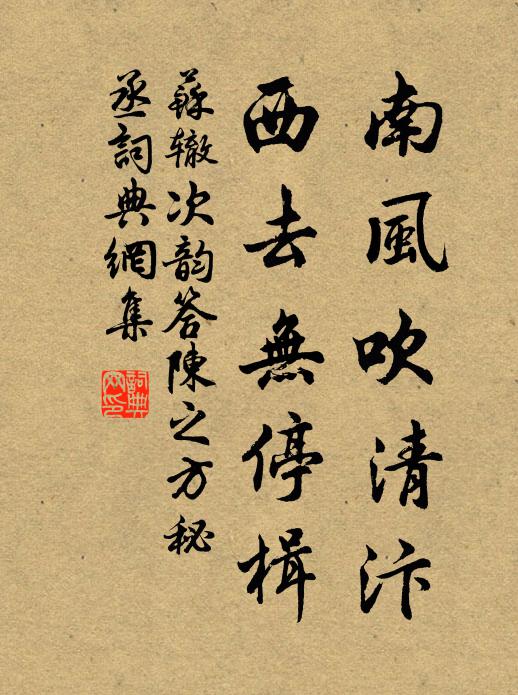 南風吹清汴
西去無停楫
蘇辙次韵答陳之方秘
丞詞典網集
詞典
网印